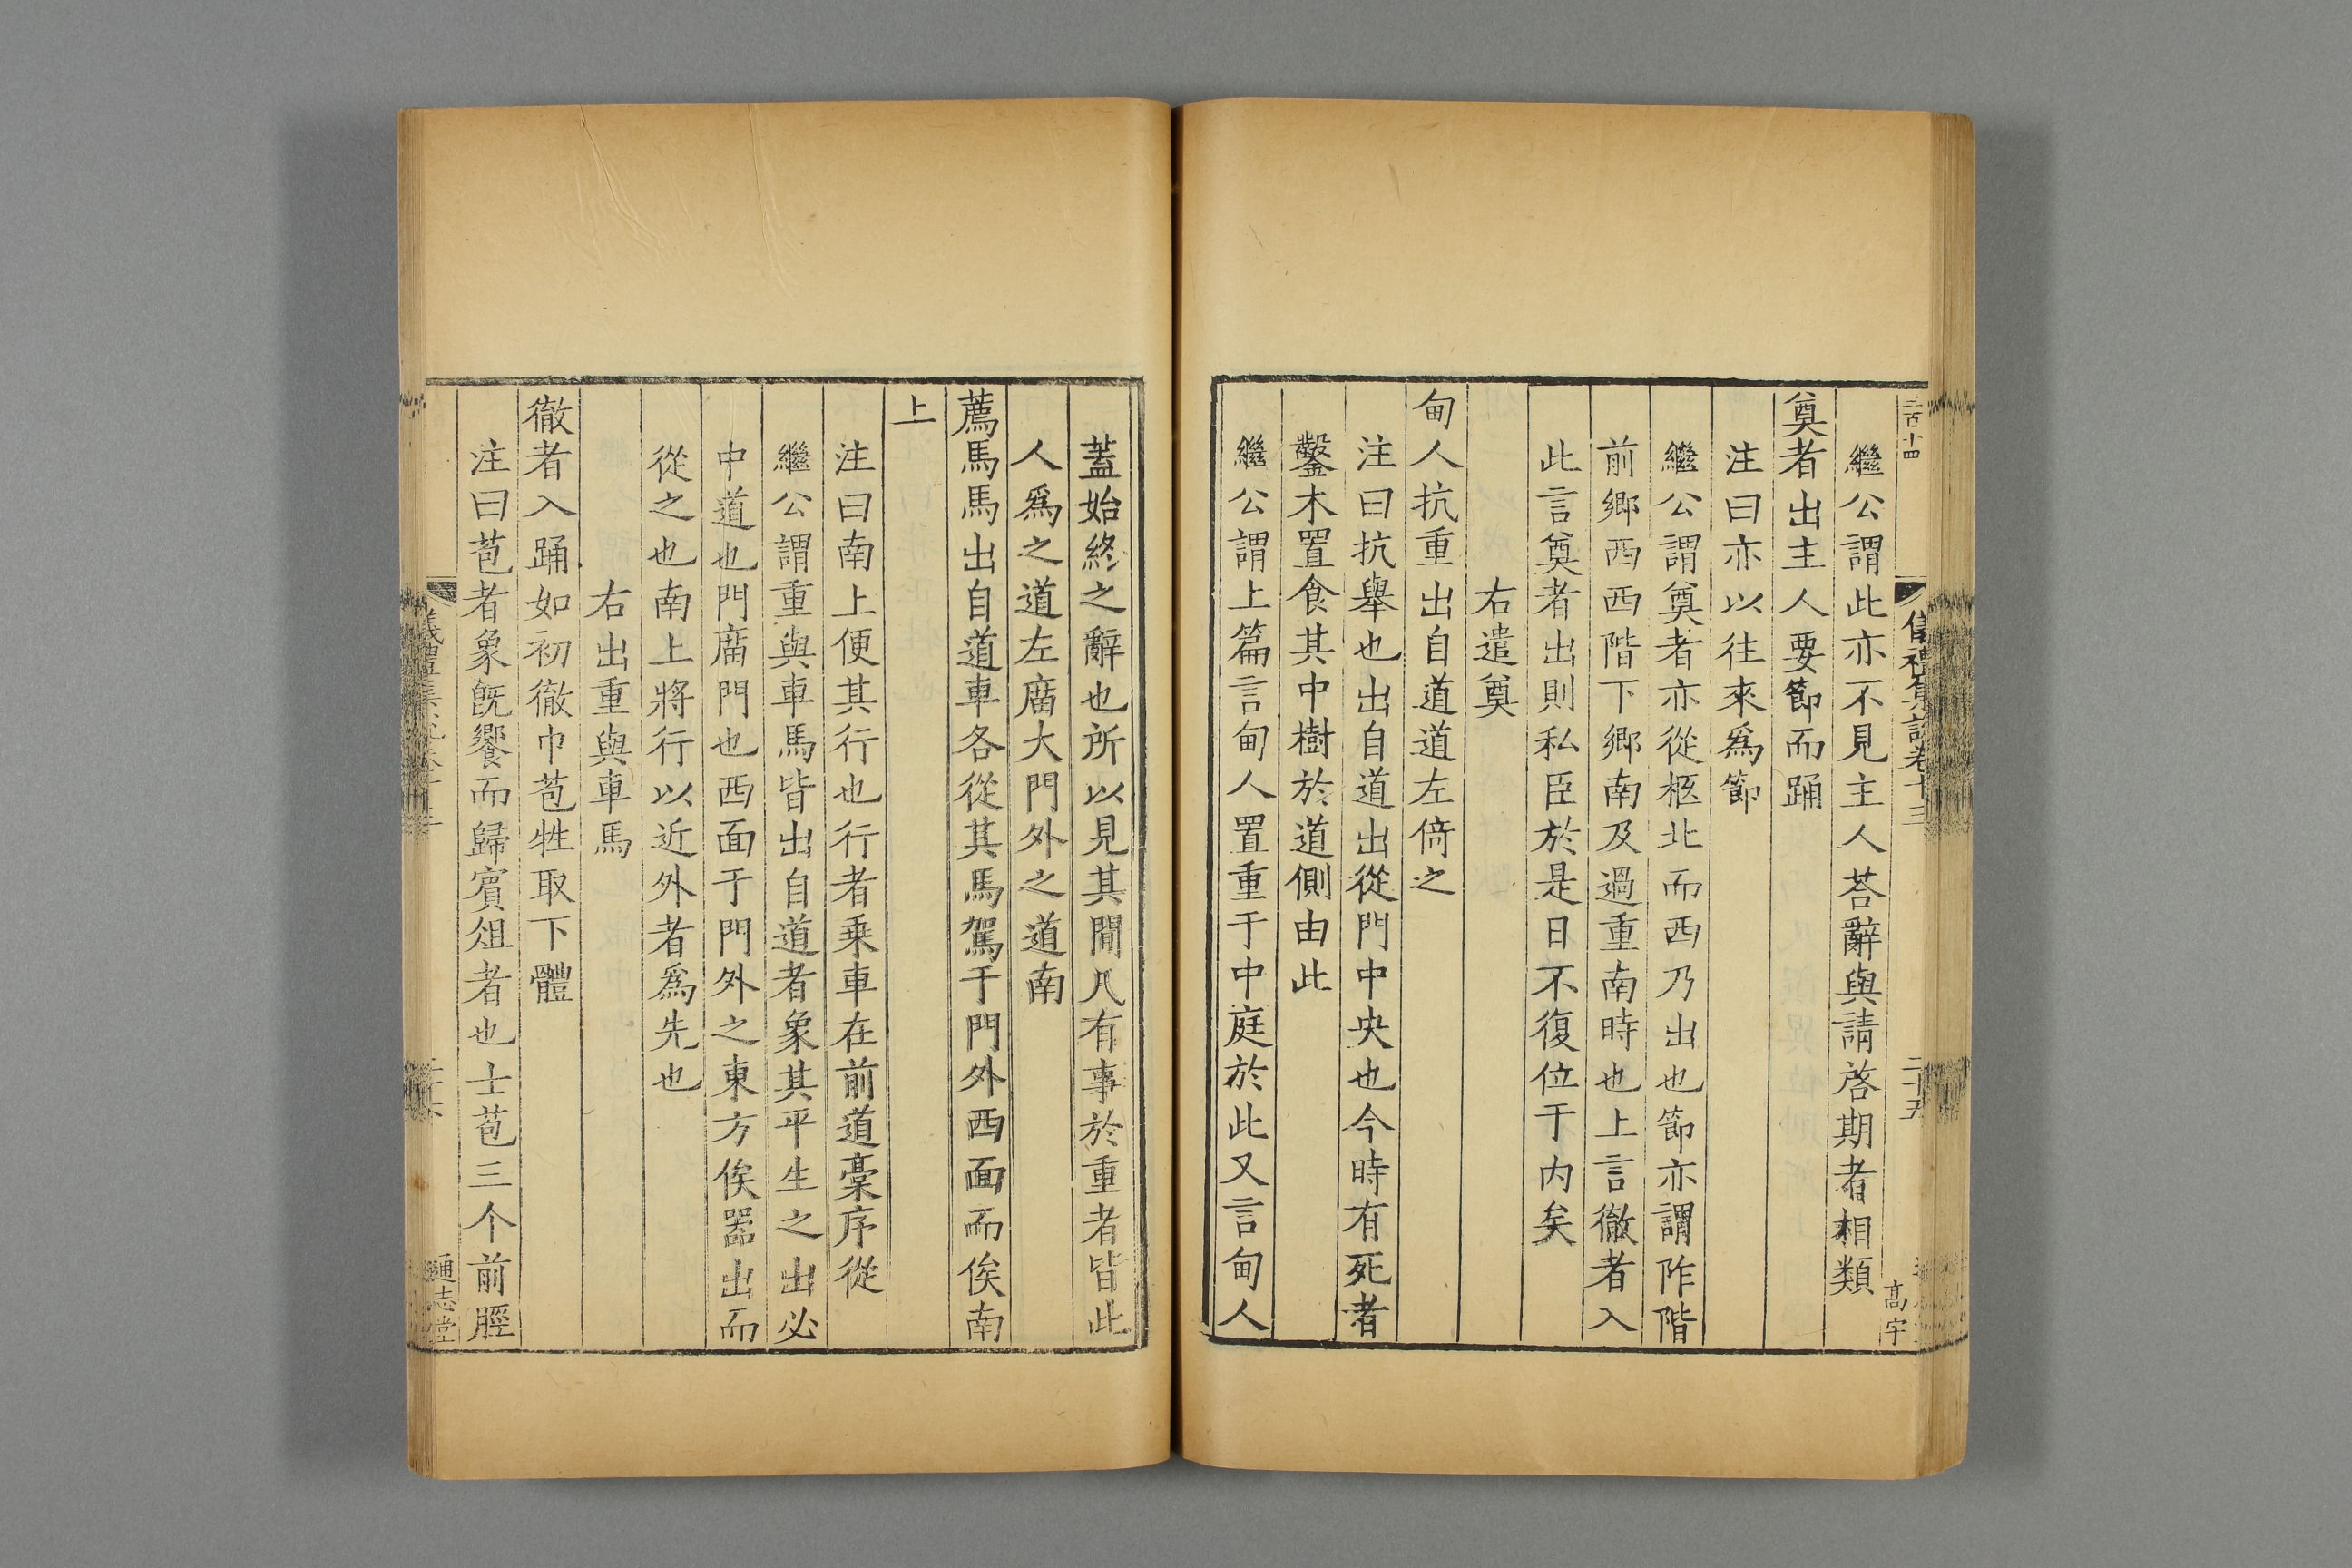 繼公謂此亦不見主人荅辭與請啓期者相類
奠者出主人要節而踊
注曰亦以往來爲節
繼公謂奠者亦從柩北而西乃出也節亦謂阼階
前鄉西西階下鄉南及過重南時也上言徹者入
此言奠者出則私臣於是日不復位于内矣
右遣奠
甸人抗重出自道道左倚之
注曰抗舉也出自道出從門中央也今時有死者
鑿木置食其中樹於道側由此
繼公謂上篇言甸人置重于中庭於此又言甸人
蓋始終之辭也所以見其閒凡有事於重者皆此
人爲之道左廟大門外之道南
薦馬馬出自道車各從其馬駕于門外西面而俟南
上
注曰南上便其行也行者乘車在前道槀序從
繼公謂重與車馬皆出自道者象其平生之出必
中道也門廟門也西面于門外之東方俟器出而
從之也南上將行以近外者爲先也
右出重與車馬
徹者入踊如初徹巾苞牲取下體
注曰苞者象旣饗而歸賓俎者也士苞三个前脛
儀禮集說卷十三
二十五
高宇
通志堂